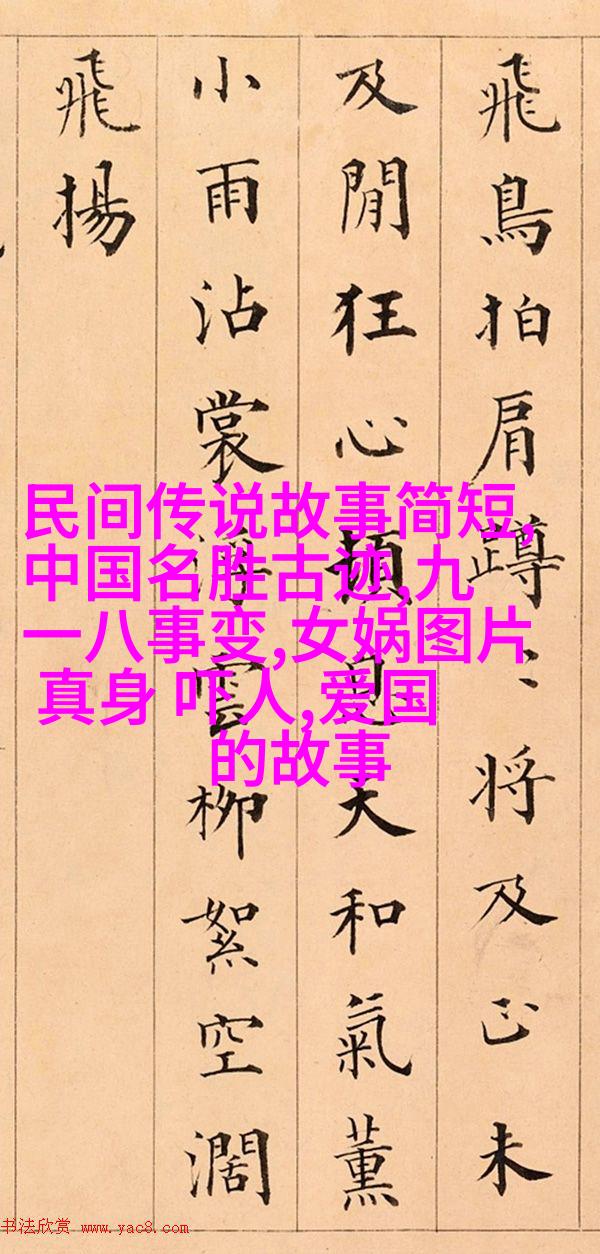 飛鳥拍肩蹲〻將及正未
及閒狂心頓見天和氣薰
小雨沾裳雲柳絮空濶
飛揚
民间传说故事简短,
中国名胜古迹,九
一八事变,女娲图片
真身 吓人,爱国
的故事
书法欣赏 www.yac8.com